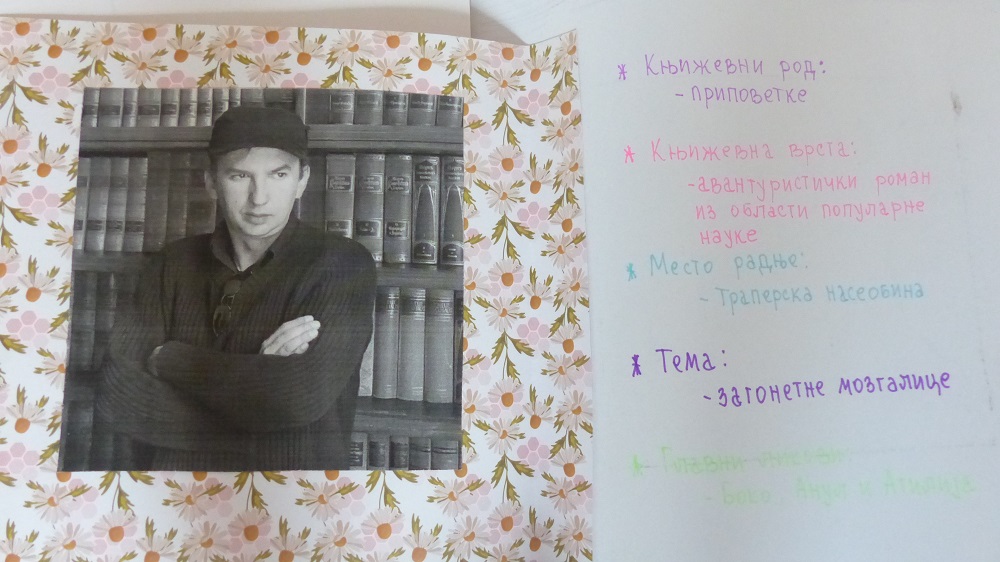 * Књижевни род:
- приповетке
* Књижевна врста:
- авантуристички роман
из области популарне
науке
* Место радње:
- Траперска насеобина
* Тема:
- загонетне мозгалице
* Главни ликови:
- и Атидија